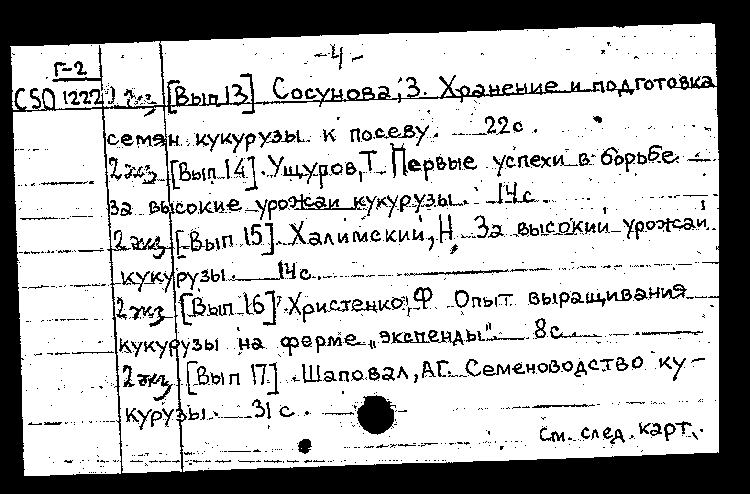 -4-
Г-2
CSO 1222 2 экз [Вып 13] Сосунова, З. Хранение и подготовка
семян кукурузы к посеву. 22с.
2 экз [Вып 14]. Ущуров, Т Первые успехи в борьбе
за высокие урожаи кукурузы. 14с.
2 экз [Вып 15]. Халимский, Н. За высокий урожай
кукурузы. 14с.
2 экз [Вып 16]. Христенко, Ф. Опыт выращивания
кукурузы на ферме „экспенды". 8с.
2 экз [Вып 17]. Шаповал, А.Г. Семеноводство ку-
курузы. 31 с.
См. след. карт.